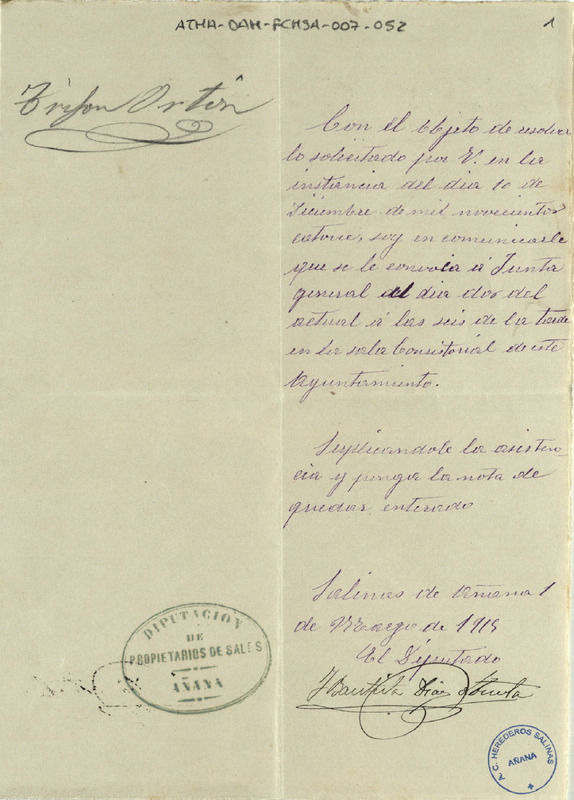 ATHA-DAH-FCHSA-007-052
1
Trifon Ortún
Con el Objeto de resolver
lo solicitado por V. en la
instancia del dia 10 de
Diciembre de mil novecientos
catorce, soy en comunicarle
que se le convoca á Junta
general el dia dos del
actual á las seis de la tarde
en la sala Consistorial de este
Ayuntamiento.
Suplicandole la asisten-
cia y ponga la nota de
quedar enterado
Salinas de Añana 1
de Marzo de 1915
El Diputado
J Bautista Diaz
DIPUTACIÓN
DE
PROPIETARIOS DE SALES
AÑANA
C. HEREDEROS SALINAS
AÑANA